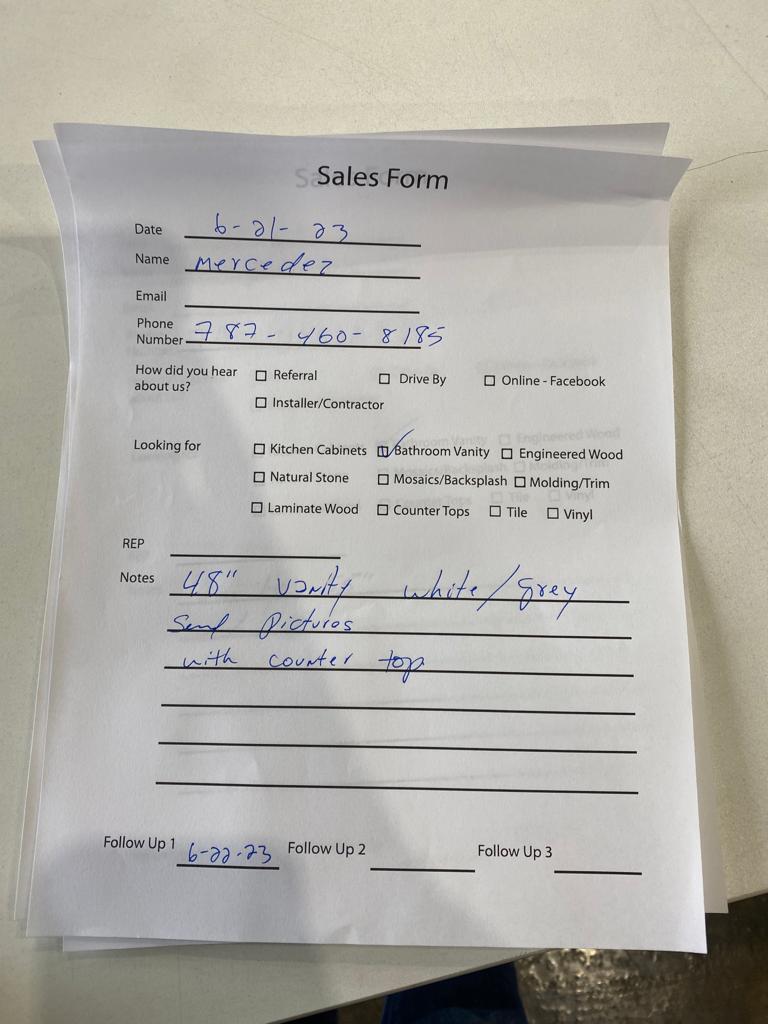 Sales Form
Date 6-21-23
Name Mercedez
Email
Phone Number 787-460-8185
How did you hear about us? ☐ Referral ☐ Drive By ☐ Online - Facebook
☐ Installer/Contractor
Looking for ☐ Kitchen Cabinets ☑ Bathroom Vanity ☐ Engineered Wood
☐ Natural Stone ☐ Mosaics/Backsplash ☐ Molding/Trim
☐ Laminate Wood ☐ Counter Tops ☐ Tile ☐ Vinyl
REP
Notes 48" vanity white/grey
Send Pictures
with counter top
Follow Up 1 6-22-23 Follow Up 2 Follow Up 3